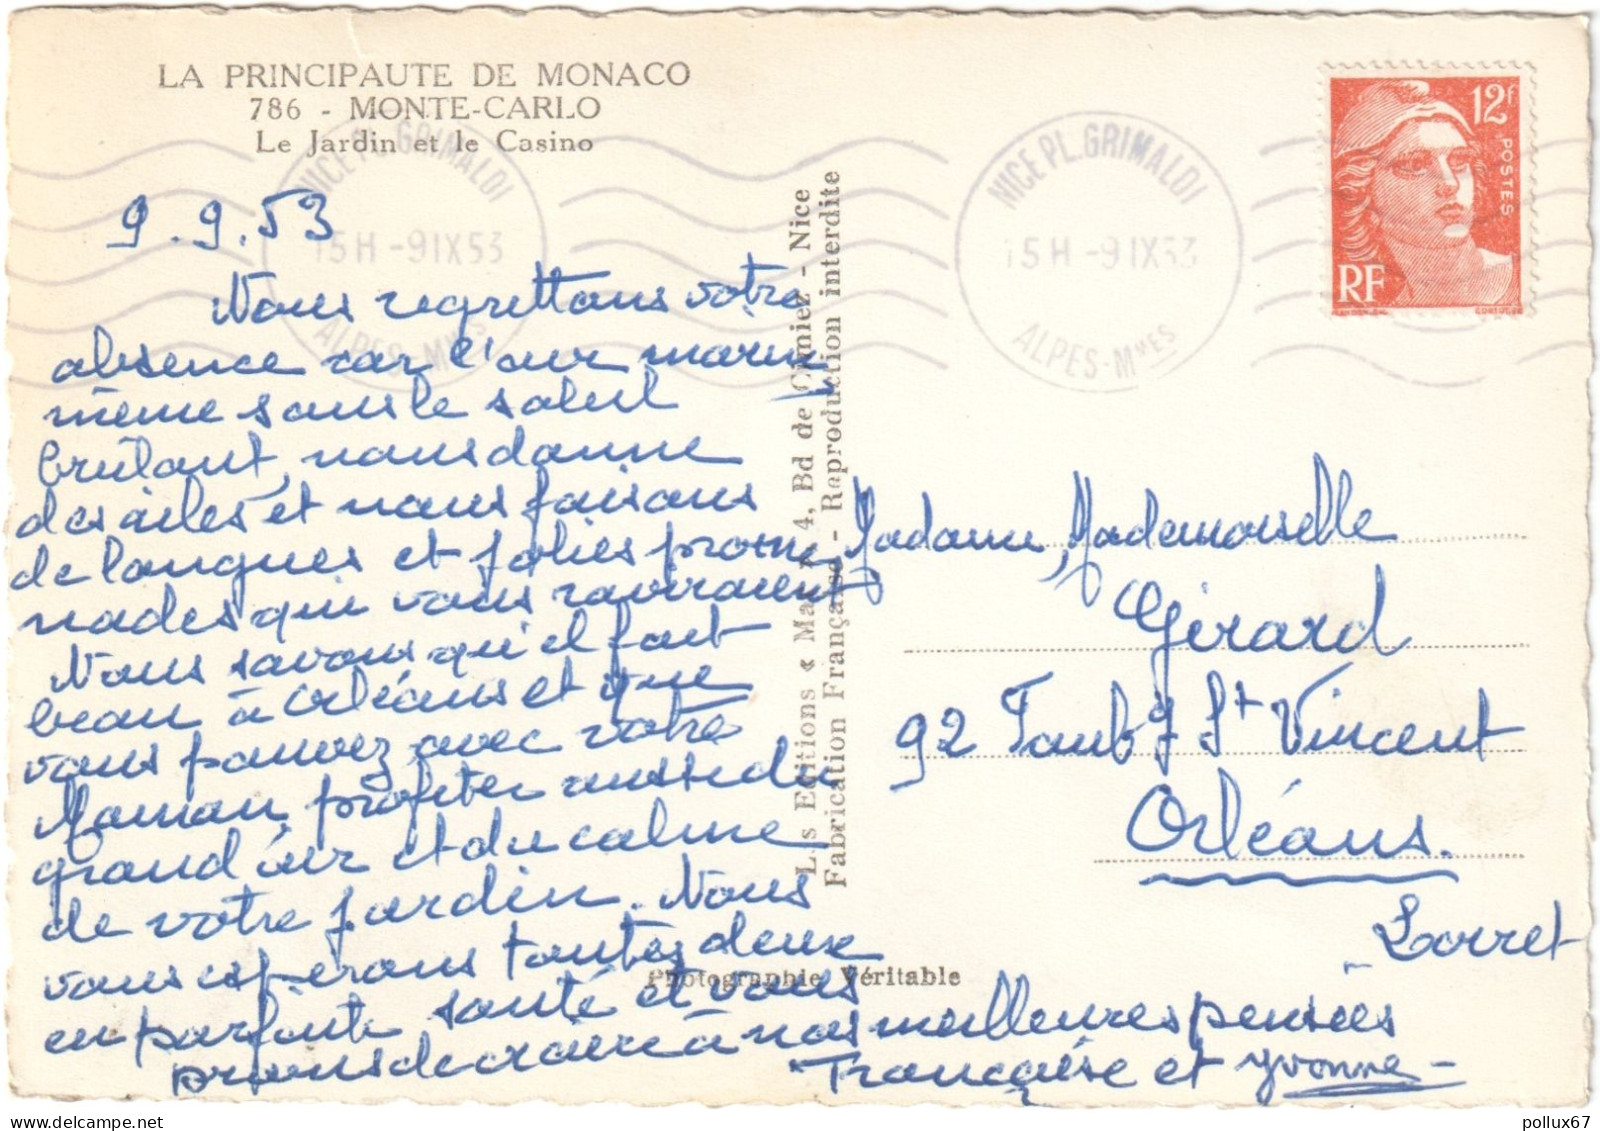 LA PRINCIPAUTE DE MONACO
786 - MONTE-CARLO
Le Jardin et le Casino
NICE PL. GRIMALDI
15H -9 IX 53
ALPES-MMES
NICE PL. GRIMALDI
15H -9 IX 53
ALPES-MMES
12F
POSTES
RF
9.9.53
Nous regrettons votre
absence car l'air marin
même sans le soleil
brûlant, nous donne
des ailes et nous faisons
de longues et jolies prome
nades qui vous raviraient
Nous savons qu'il fait
beau à Orléans et que
vous pouvez avec votre
Maman, profiter aussi du
grand'air et du calme
de votre jardin. Nous
vous espérons toutes deux
en parfaite santé et vous
prions de croire à nos meilleures pensées
Françoise et Yvonne -
Les Editions « Mar », 4, Bd de Cimiez - Nice
Fabrication Française - Reproduction interdite
Photographie Véritable
Madame, Mademoiselle
Gérard
92 Faubg St Vincent
Orléans.
Loiret
delcampe.net
pollux67